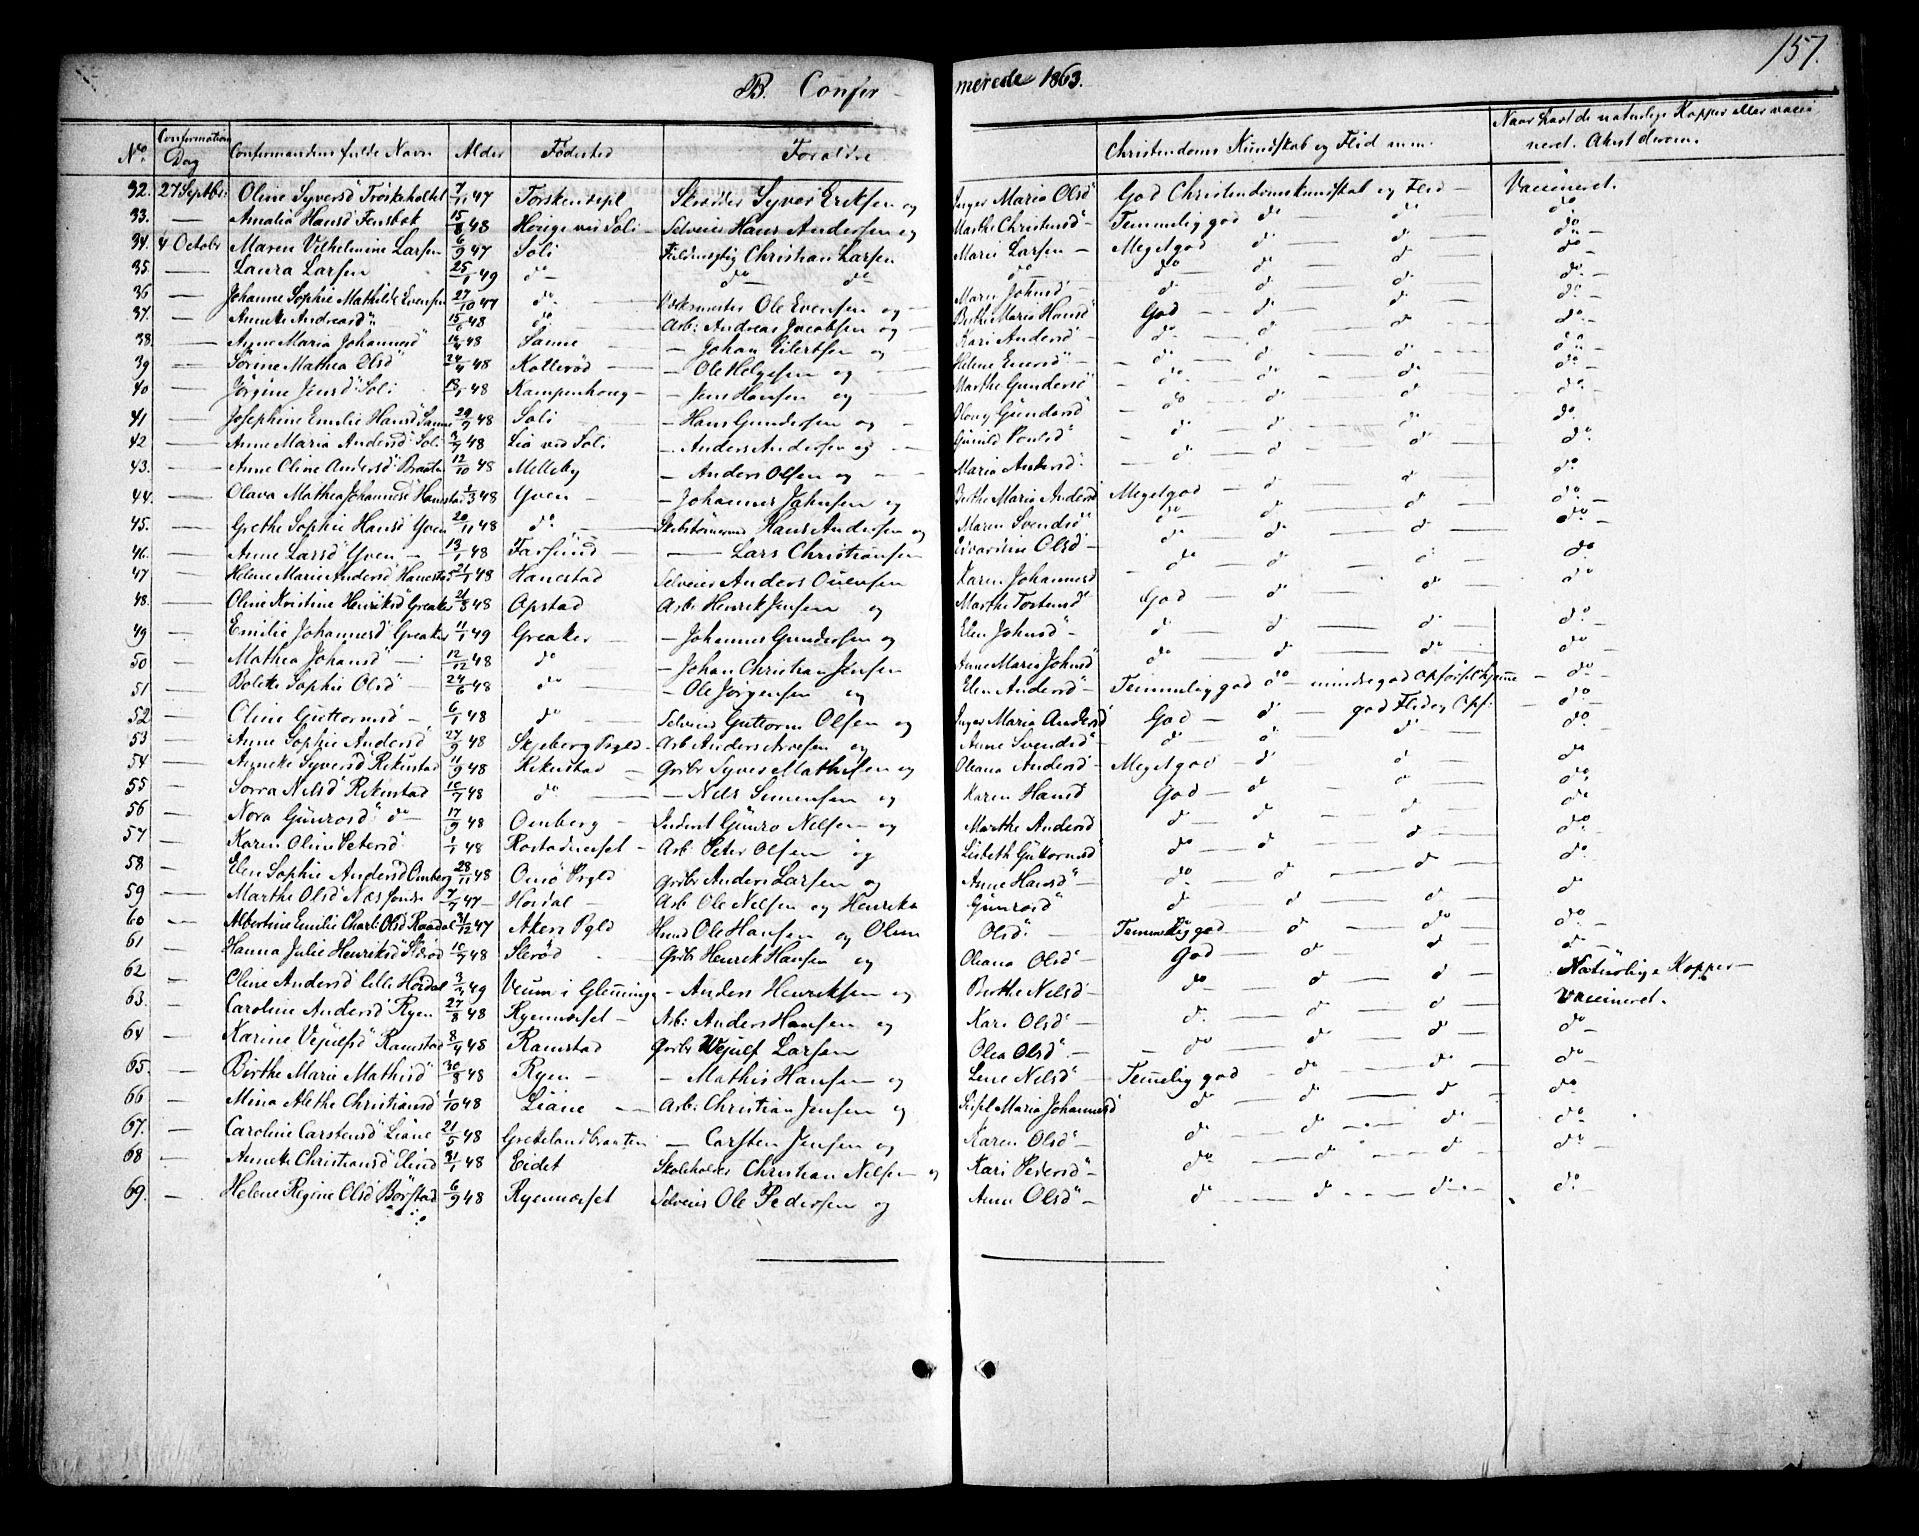 157.
B. Confir - merede 1863.
No. Confirmations Dag Confirmandens fulde Navn Alder Födested Foraldre Christendoms Kundskab og Flid m.m. Naar havt de naturlige Kopper eller vacci neret. Attest derom.
32. 27 Septbr: Oline Syversd" Tröskeholtet 7/1 47 Torskenespl Skrædder Syver Eriksen og Inger Maria Olsd" God Christendomskundskab og Flid - Vaccineret.
33. — Amalia Hansd 15/8 48 Höiige ved Soli - Selveier Hans Andersen og Marthe Christensd" Temmelig god do do do
34. 4 Octobr Maren Vilhelmine Larsen 6/9 47 Soli Fuldmægtig Christian Larsen Marie Larsen - Meget god do do do
35. — Laura Larsen 25/1 49 do do do do do do do do
36 — Johanne Sophie Mathilde Evensen 27/10 47 do Værksmester Ole Evensen og Maren Johnsd" do do do do
37. — Anneke Andreasd" 15/6 48 do Arb: Andreas Jacobsen og Berthe Maria Hansd" God do do do
38. — Anne Maria Johannesd" 48 Sanne — Johan Eilertsen og Kari Andersd" do do do do
39 — Sörine Mathea Olsd" 24/4 48 Kollerød — Ole Helgesen og Helene Enersd" do do do do
40 — Jörgine Jensd" Soli 13/1 48 Kampenhoug — Jens Hansen og Marthe Gundersd" do do do do
41 — Josephine Emilie Hansd" Sanne 29/9 48 Soli — Hans Gundersen og Olony Gundersd" do do do do
42 — Anne Maria Andersd" Soli 48 Lia ved Soli — Anders Andersen og Gunild Poulsd" do do do do
43. — Anne Oline Andersd" Braaten 12/10 48 Melleby — Anders Olsen og Maria Andersd" do do do do
44. — Olava Mathea Johannesd" Hanestad 1/3 48 Yven — Johannes Johnsen og Berthe Maria Andersd" Meget god do do do
45. — Grethe Sophie Hansd" Yven 20/11 48 do Skibstömmermd Hans Andersen og Maren Svendsd" do do do do
46. — Anne Larsd" Yven 13/1 48 Farsund — Lars Christiansen Olsd" do do do do
47 — Helene Marie Andersd" Hanestad 21/1 48 Hanestad Selveier Anders Ouensen Karen Johannesd" do do do do
48. — Oline Kristine Henriksd" Greaker 21/8 48 Opstad Arb: Henrik Jensen og Marthe Torstensd" God do do do
49 — Emilie Johannesd" Greaker 11/1 49 Greaker — Johannes Gundersen og Elen Johnsd" do do do do
50 — Mathea Johansd" 12/12 48 do — Johan Christian Jensen Anne Maria Johnsd" do do do do
51 — Bolette Sophie Olsd" 24/6 48 do — Ole Jörgensen og Elen Andersd" Temmelig god do mindre god Opförsel hjemme do
52 — Oline Guttormsd" 6/1 48 do Selveier Guttorm Olsen og Inger Maria Andersd" God do god Flid og Opf: do
53 — Anne Sophie Andersd" 27/9 48 Skjeberg Prgld. Arb: Anders Arvesen og Anne Svendsd" do do do do
54 — Anneke Syversd" Rekustad 11/9 48 Rekustad Grdbr Syver Mathisen og Oleana Andersd" Meget god do do do
55 — Nilsd" Rekustad 10/7 48 do — Nels Simensen og Karen Hansd God do do do
56 — Nora Gunrosd" do 17/9 48 Omberg Inderst Gunro Nelsen og Marthe Andersd do do do do
57 — Karen Oline Petersd" 1/1 48 Rostadnæset Arb. Peter Olsen og Lisbeth Guttormsd" do do do do
58 — Elen Sophie Andersd Omberg 28/11 48 Onsö Prgld Grdbr Anders Larsen og Anne Hansd" do do do do
59 — Marthe Olsd" Næs 7/7 47 Hördal Arb Ole Nelsen og Henrika Gunrosd" do do do do
60 — Albertine Emilie Charl: Olsd Raadal 31/12 47 Akers Pgld Ole Hansen og Oline Olsd" Temmelig god do do do
61 — Hanna Julie Henriksd" Slevød 10/9 48 Slerød Grdbr Henrik Hansen og Oleana Olsd" God do do do
62 — Oline Andersd lille Hördal 3/3 49 Veum i Glemminge — Anders Henriksen og Berthe Nelsd" do do do Naturlige Kopper
63. — Caroline Andersd Ryen 27/8 48 Ryenmæset Arb: Anders Hansen og Kari Olsd" do do do Vaccineret.
64 — Karine Vejulfsd" Ramstad 8/4 48 Ramstad Grdbr Wejulf Larsen Olea Olsd". do do do do
65. — Birthe Marie Mathisd" 30/8 48 Ryen — Mathis Hansen og Lene Nelsd" Temelig god do do do
66 — Mina Alethe Christiansd" 1/10 48 Liane Arb: Christian Jensen og Maria Johannesd do do do do
67. — Caroline Carstensd" Liane 21/5 48 Grekelandbraaten — Carsten Jensen og Karen Olsd" do do do do
68 — Anneke Christiansd" 31/1 48 Eidet Skoleholder Christian Nelsen og Kari Pedersd" do do do do
69. — Helene Regine Olsd" Börstad 6/9 48 Ryenmæset Selveier Ole Pedersen og Anne Olsd" do do do do